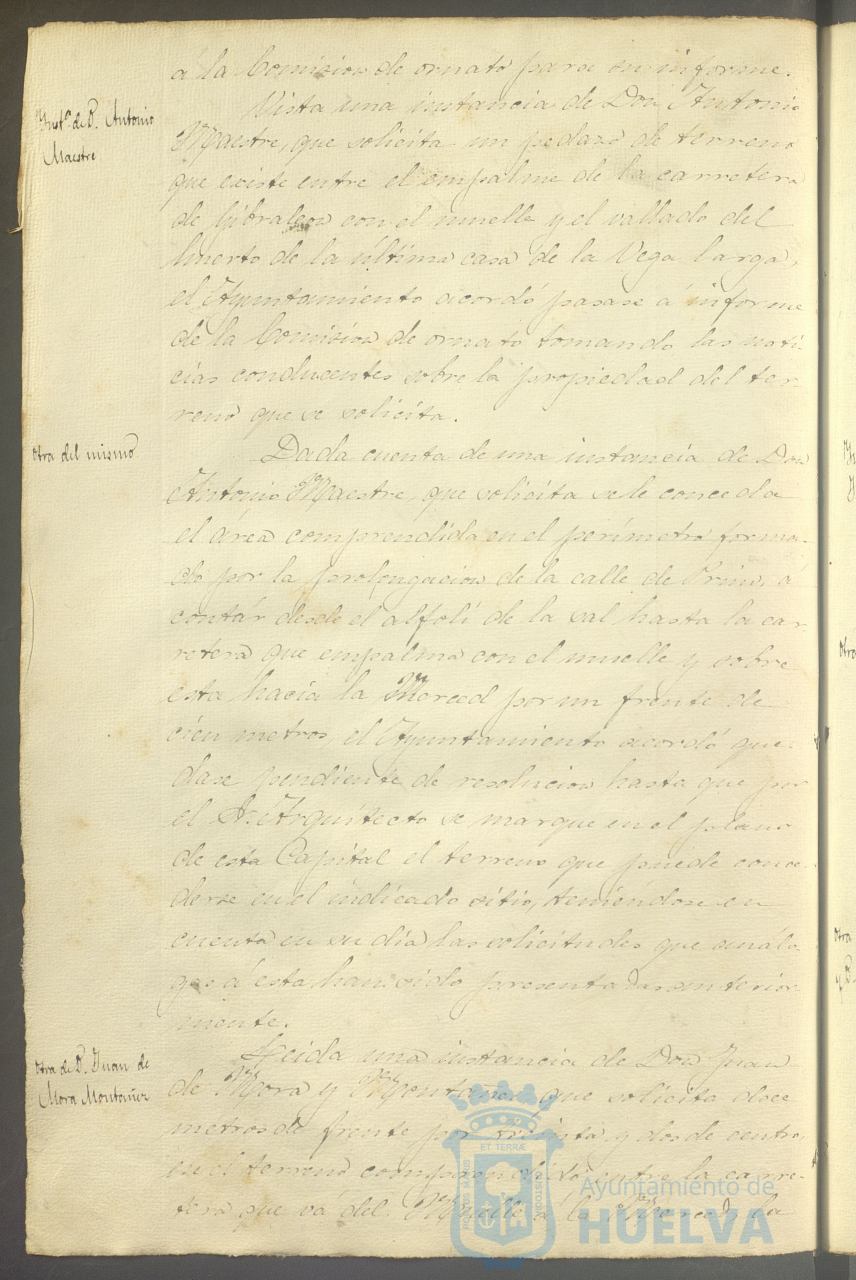 á la Comision de ornato para su informe.
Inst.ª de D. Antonio
Maestre
Vista una instancia de Don Antonio
Maestre, que solicita un pedazo de terreno
que existe entre el empalme de la carretera
de Gibraleon con el muelle y el vallado del
huerto de la última casa de la Vega larga,
el Ayuntamiento acordó pasase á informe
de la Comision de ornato tomando las noti-
cias conducentes sobre la propiedad del ter-
reno que se solicita.
Otra del mismo
Dada cuenta de una instancia de Don
Antonio Maestre, que solicita se le conceda
el área comprendida en el perímetro forma-
do por la prolongacion de la calle de Prim, á
contár desde el alfolí de la sal hasta la car-
retera que empalma con el muelle y sobre
esta hacia la Merced por un frente de
cien metros, el Ayuntamiento acordó que-
dase pendiente de resolucion hasta que por
el Sr. Arquitecto se marque en el plano
de esta Capital el terreno que puede conce-
derse en el indicado sitio, teniéndose en
cuenta en su dia las solicitudes que análo-
gas á esta han sido presentadas anterior-
mente.
Otra de D. Juan de
Mora Montañez
Leida una instancia de Don Juan
de Mora y que solicita doce
metros de frente por treinta y dos de centro,
en el terreno comprendido entre la carre-
tera que vá del Muelle á la Merced, la
ET TERRÆ
PORTUS MARIS
CUSTODIA
Ayuntamiento de
HUELVA